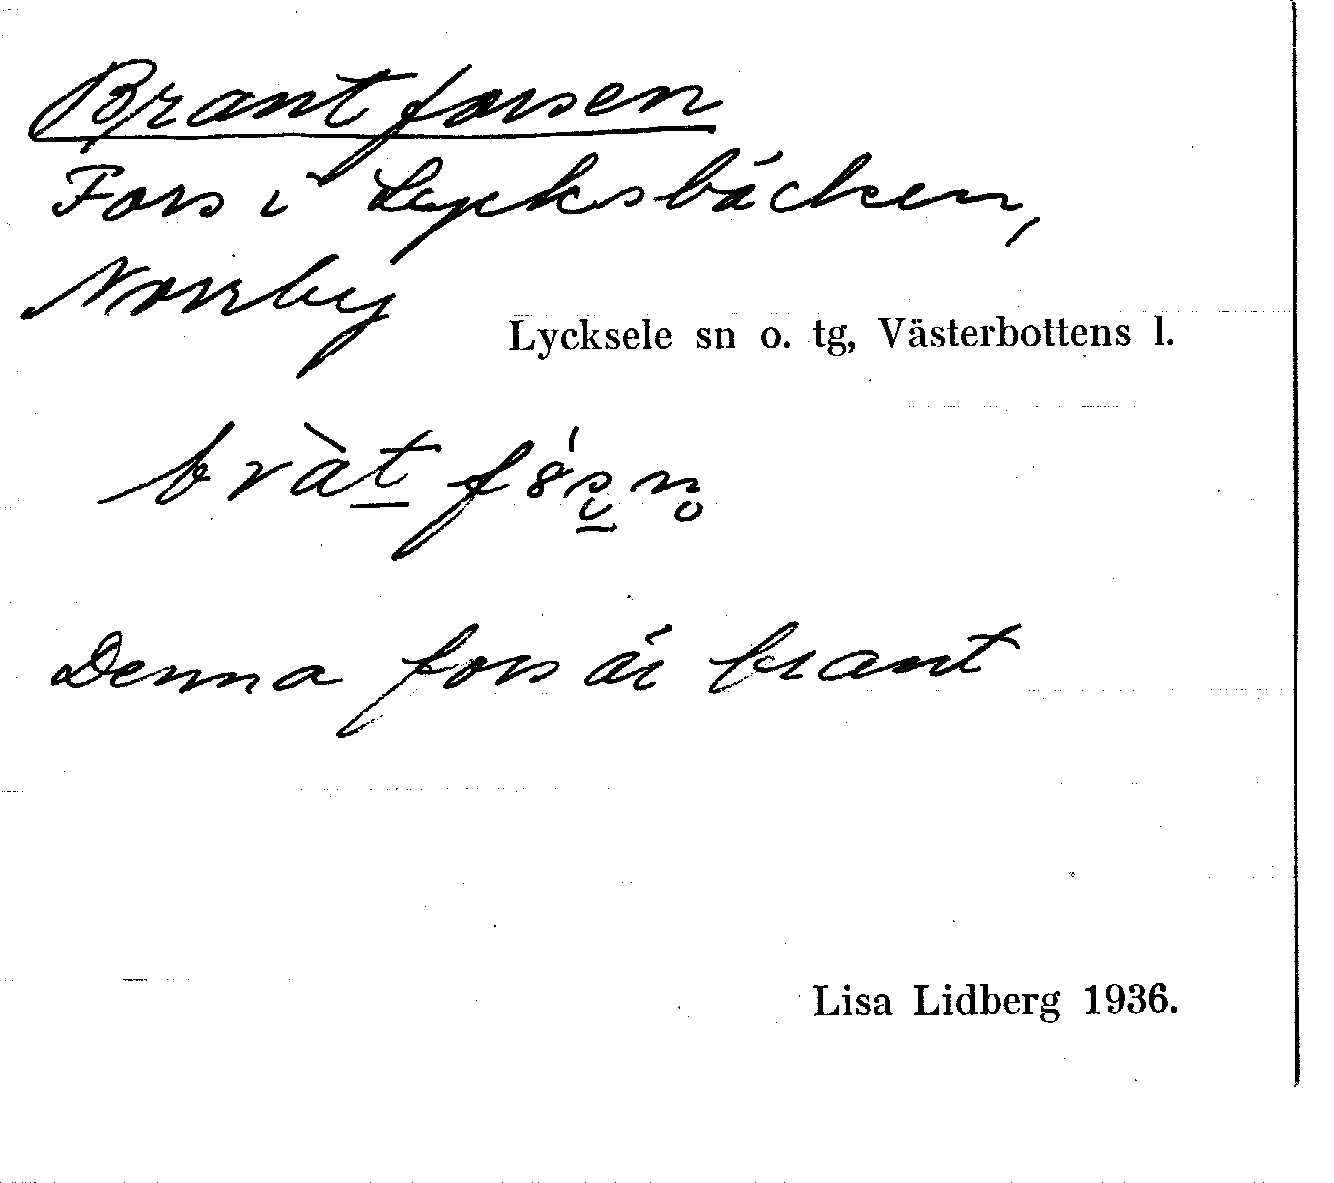 Brantforsen
Fors i Lycksbäcken,
Norrby
Lycksele sn o. tg, Västerbottens l.
Denna fors är brant
Lisa Lidberg 1936.